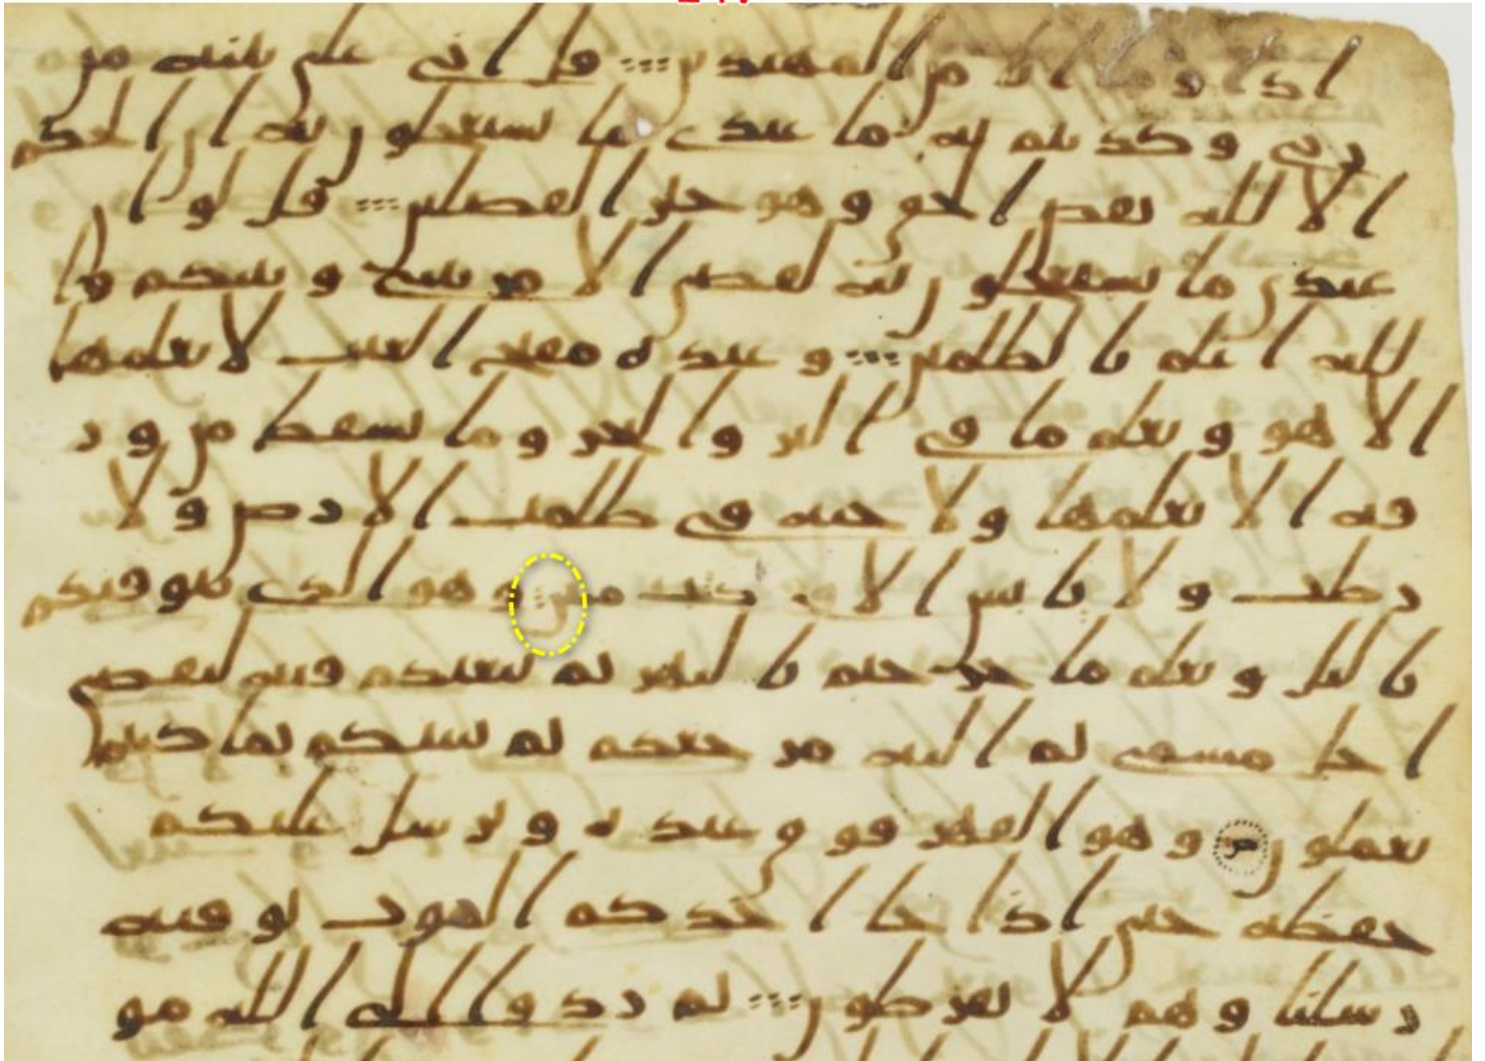 اذا وما انا من المهتدين قل اني على بينه من
ربي وكذبتم به ما عندي ما تستعجلون به ان الحكم
الا لله يقص الحق وهو خير الفصلين قل لو ان
عندي ما تستعجلون به لقضي الامر بيني وبينكم وا
لله اعلم بالظلمين وعنده مفتح الغيب لا يعلمها
الا هو ويعلم ما في البر والبحر وما تسقط من ور
قه الا يعلمها ولا حبه في ظلمت الارض ولا
رطب ولا يابس الا في كتب مبين وهو الذي يتوفيكم
باليل ويعلم ما جرحتم بالنهر ثم يبعثكم فيه ليقضى
اجل مسمى ثم اليه مرجعكم ثم ينبئكم بما كنتم
تعملون وهو القهر فوق عبده ويرسل عليكم
حفظه حتى اذا جا احدكم الموت توفته
رسلنا وهم لا يفرطون ثم ردوا الى الله مو